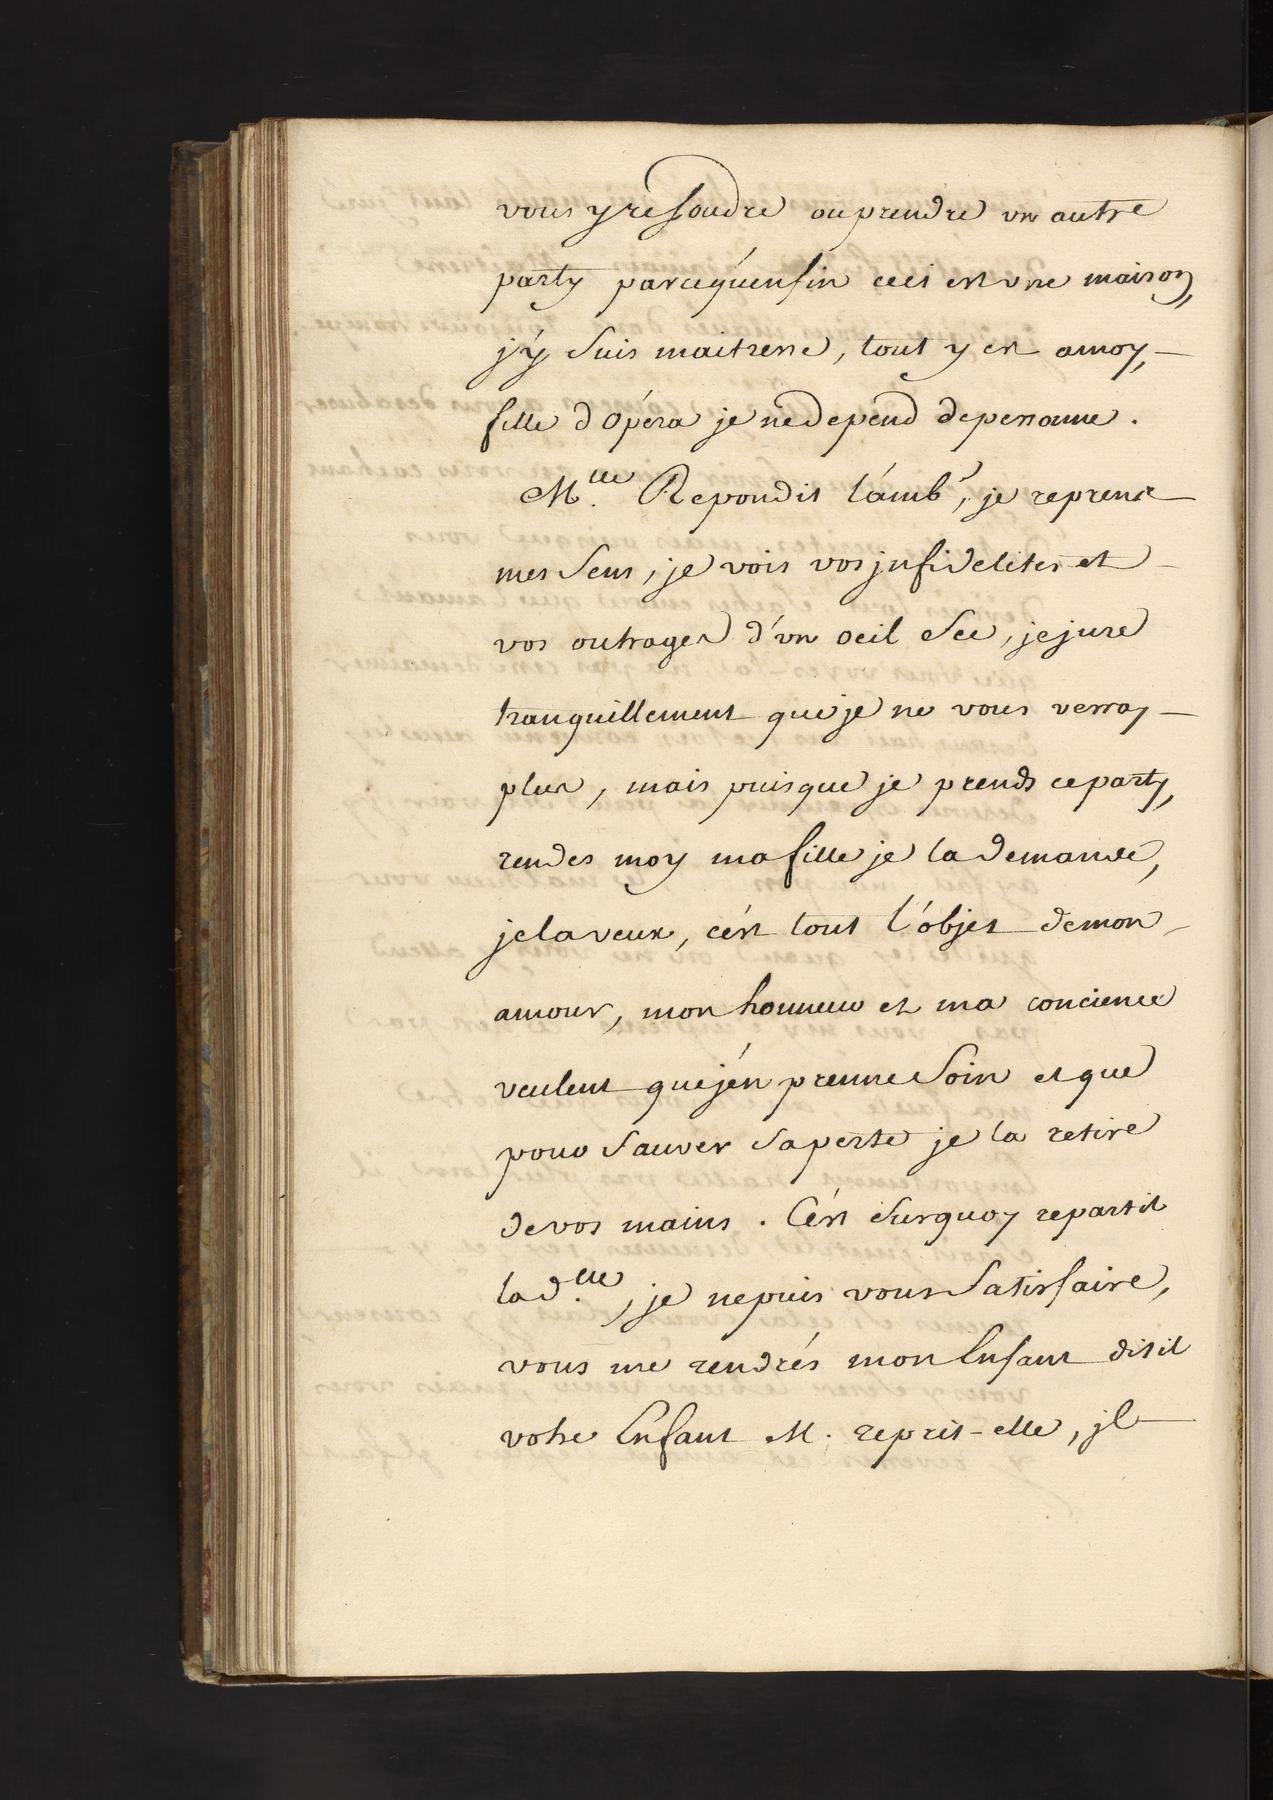 vous y resoudre ou prendre un autre
party parcequ'enfin ceci est une maison,
j'y suis maitresse, tout y est a moy,
fille d'opéra je ne depend de personne.
M.lle Repondit l'amb.r, je reprens
mes sens, je vois vos jnfidelites et
vos outrages d'un oeil sec, je jure
tranquillement que je ne vous verray
plus, mais puisque je prends ce party,
rendes moy ma fille je la demande,
je la veux, c'est tout l'objet de mon
amour, mon honneur et ma concience
veulent que j'en prenne soin et que
pour sauver sa perte je la retire
de vos mains. C'est surquoy repartit
la d.lle, je ne puis vous satisfaire,
vous me rendrés mon Enfant dit il
votre Enfant M. reprit-elle, jl